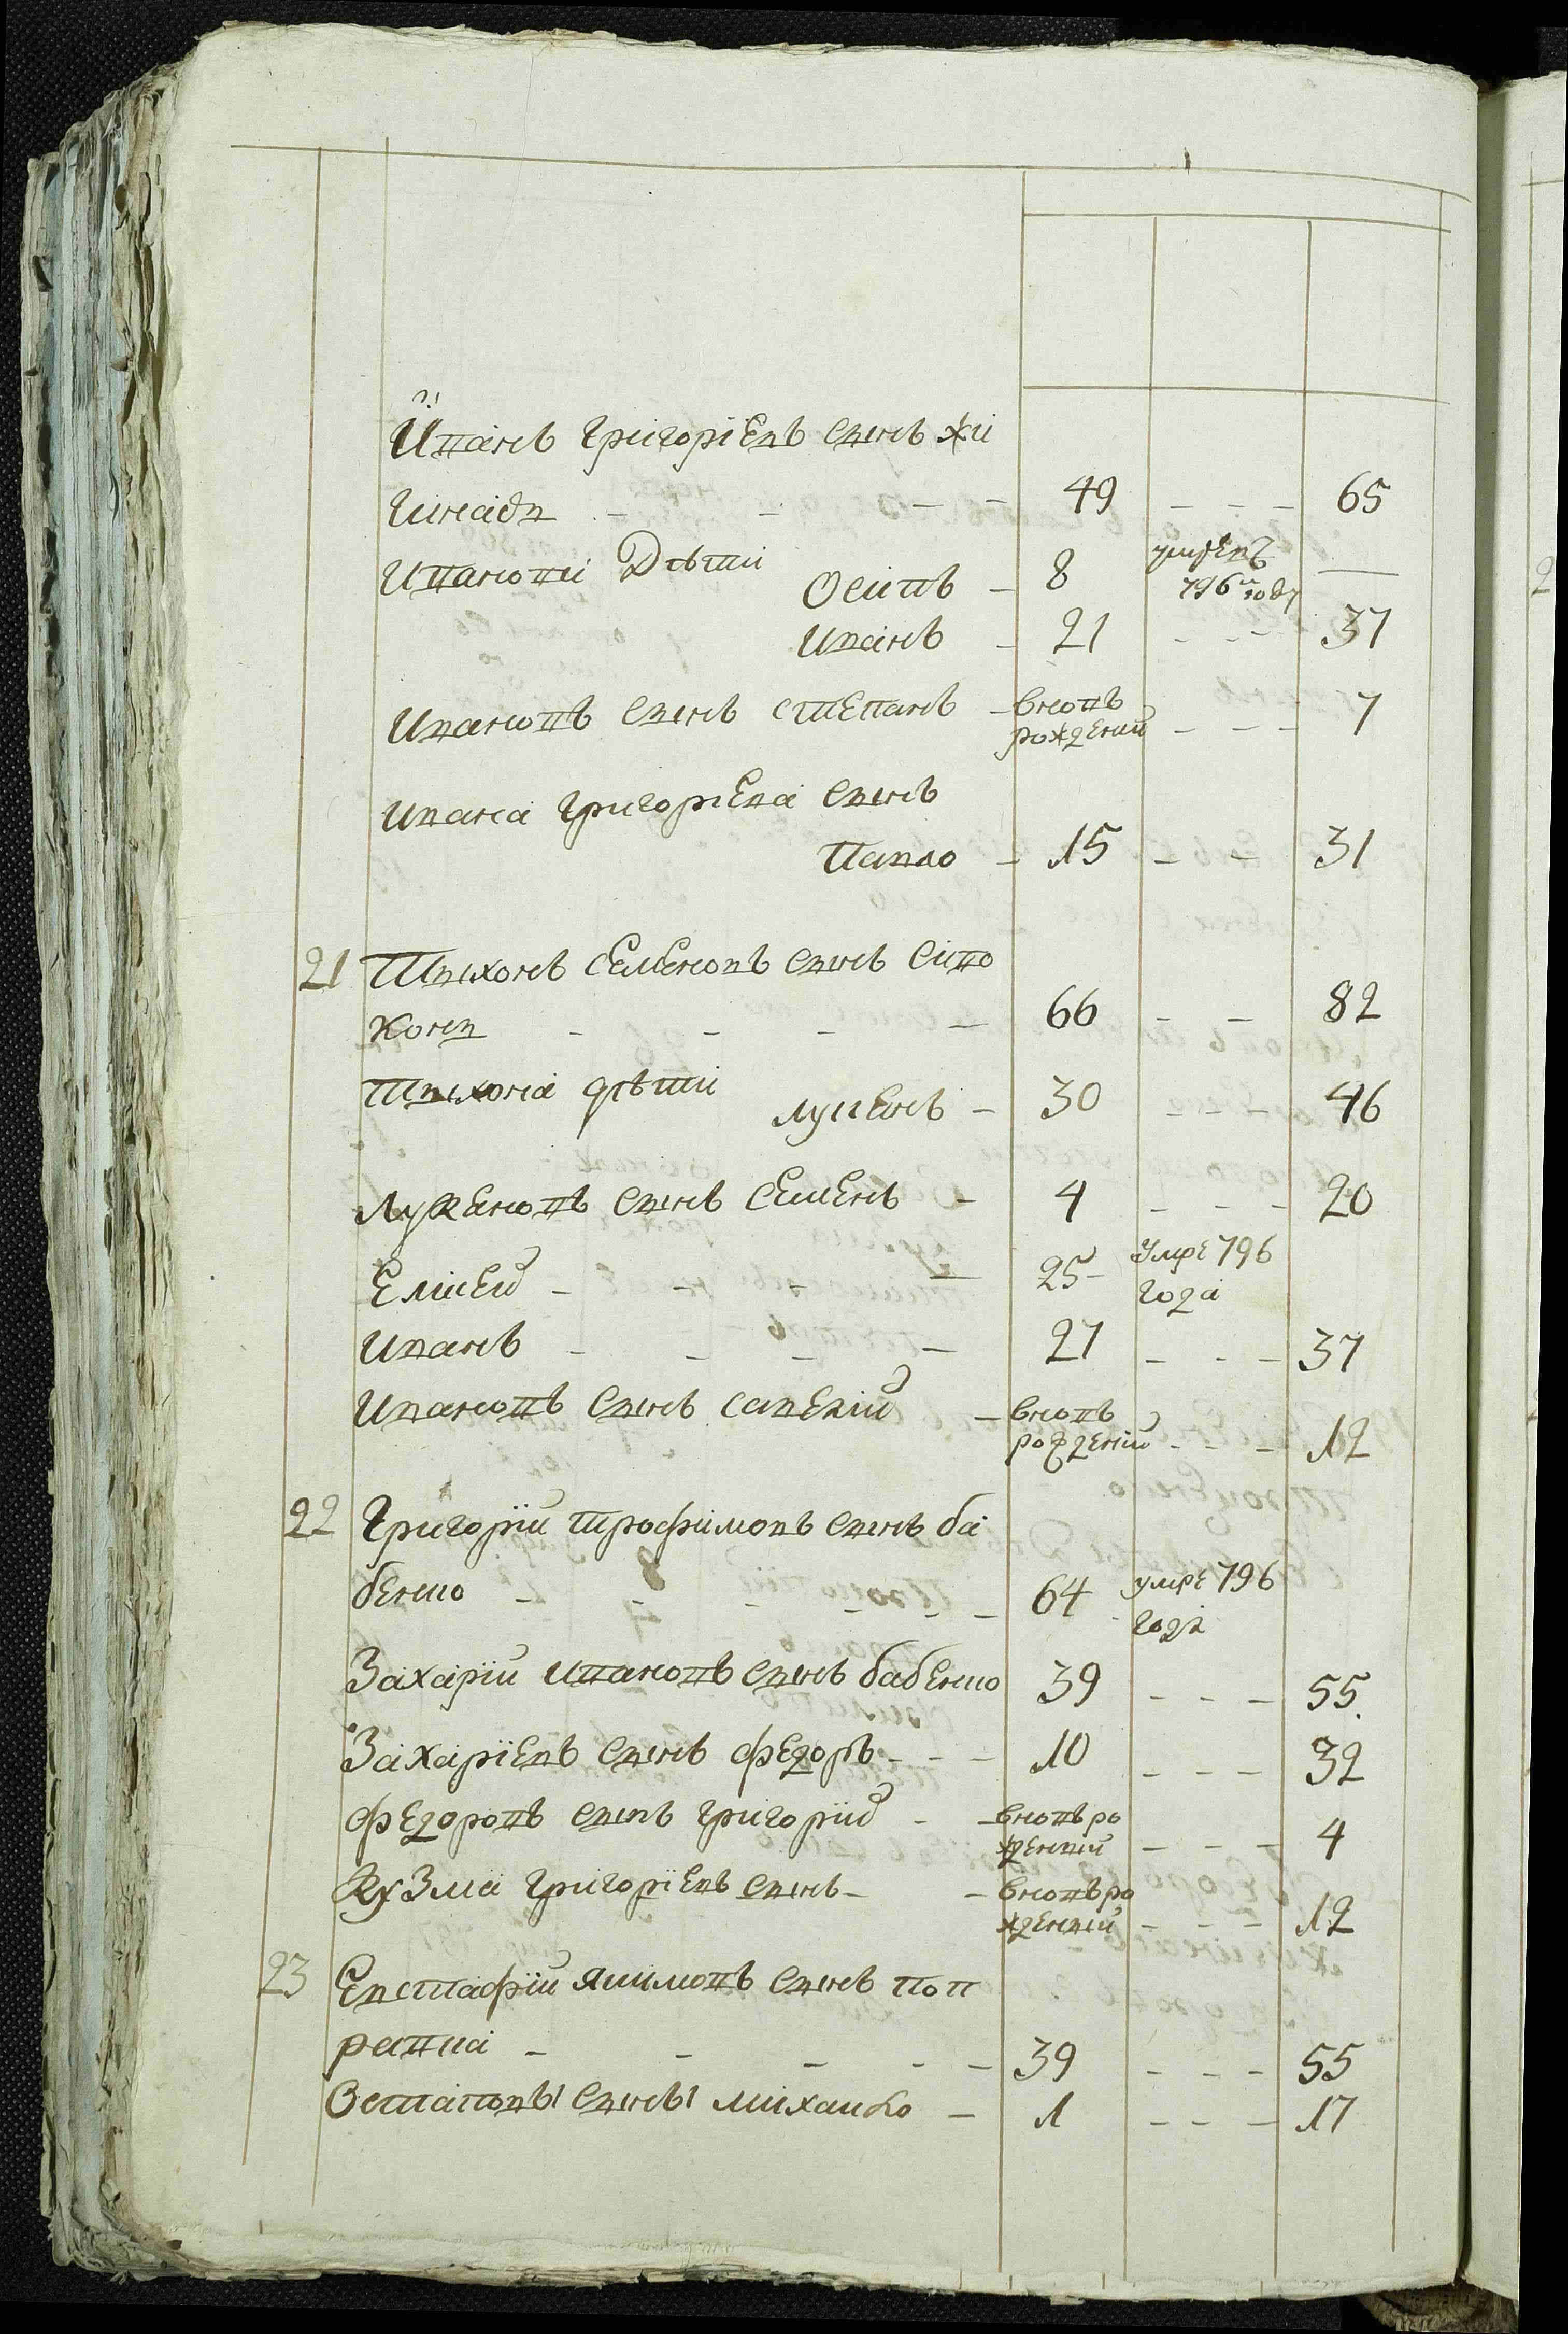 Иванъ Григорiевъ сынъ жи
гинадъ - - - - 49 - - - 65
Ивановы Дѣти
Осипъ - 8 умреъ 796 году —
Иванъ - 21 - - - 37
Ивановъ сынъ степанъ - вновь рожденый - - - 7
Ивана Григорiева сынъ
Павло - 15 - - 31
21 Тихонъ Семеновъ сынъ сиво
конъ - - - - 66 - - 82
Тихона дѣти
лукенъ - 30 - - - 46
Лукеновъ сынъ Семенъ - 4 - - - 20
Елисей - - - - 25 - Умре 796 года
Иванъ - - - - 21 - - - 37
Ивановъ сынъ савелий - вновь рожденый - - - 12
22 Григорïй трофимовъ сынъ ба
бенко - - - - - - 64 умре 796 года
Захарïй Ивановъ сынъ бабенко 39 - - - 55.
Захарïевъ сынъ федоръ - - - 10 - - - 32
федоровъ сынъ Григорïй - - вновь ро жденый - - - 4
Кузма Григорïевъ сынъ - - вновь ро жденый - - - 12
23 Евстафïй якимовъ сынъ пов
- - - - - 39 - - - 55
Остаповы сыны михайло - 1 - - - 17